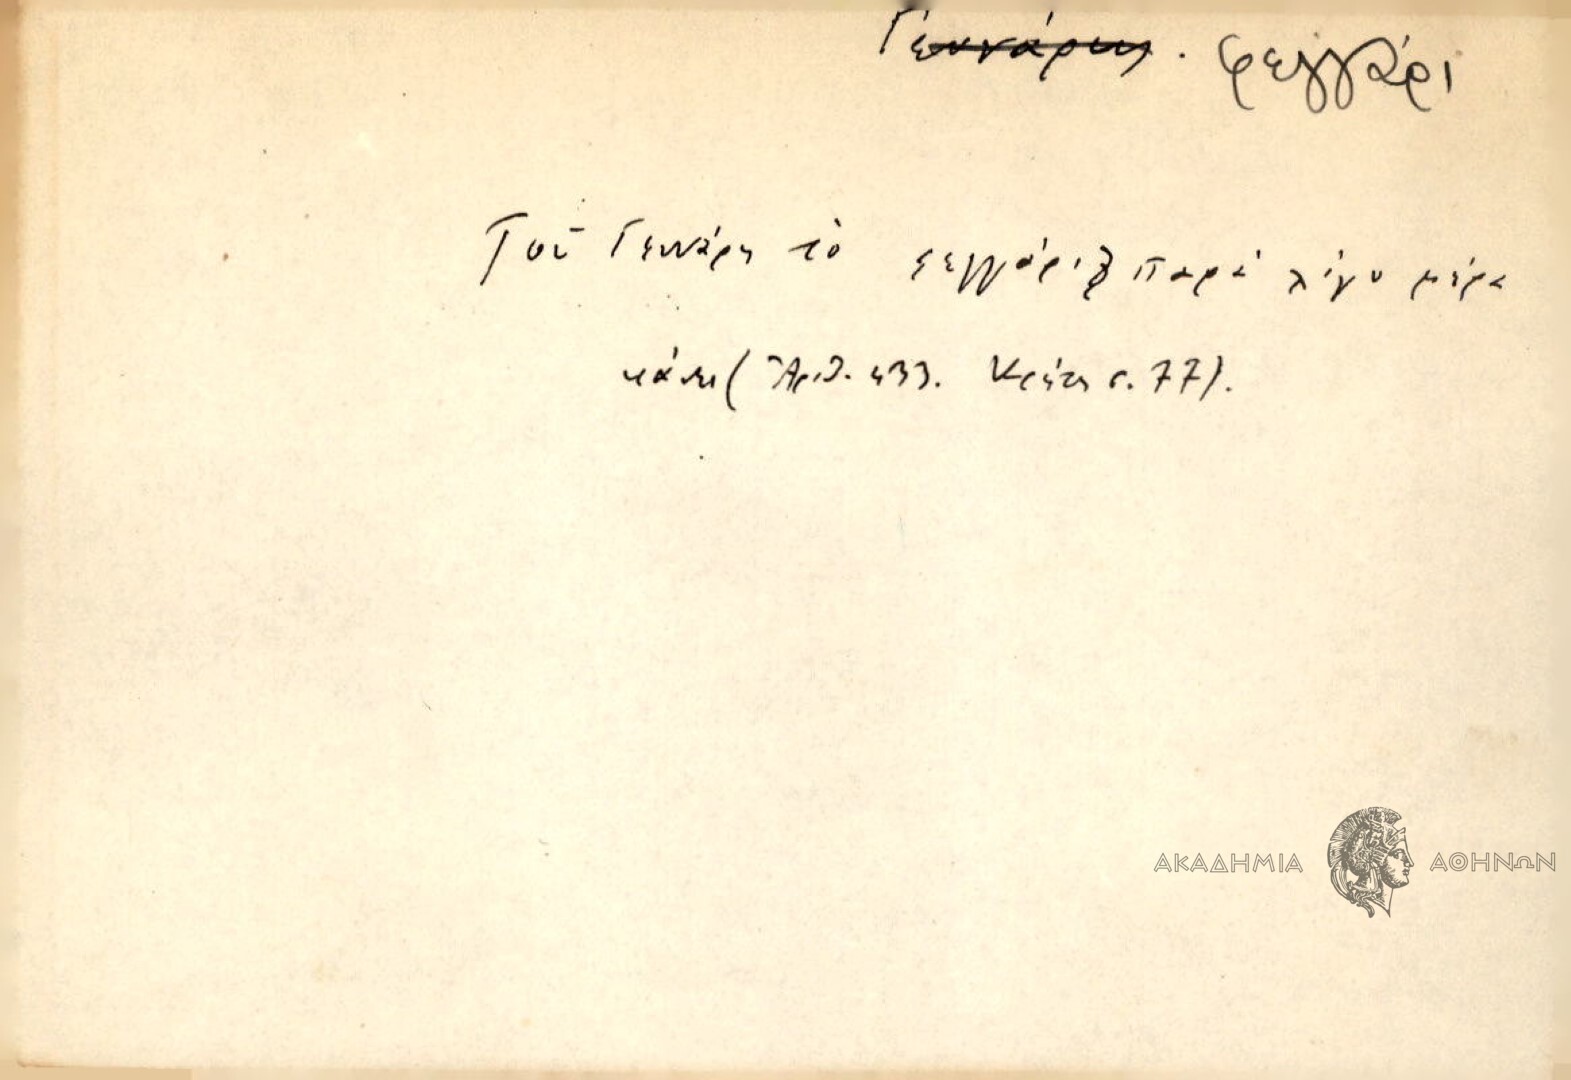 Γεννάρης. φεγγάρι
Τοῦ Γεννάρη τὸ φεγγάρι παρὰ λίγο μέρα
κάνει (Ἀριθ. 433. Κρήτη σ. 77).
ΑΚΑΔΗΜΙΑ ΑΘΗΝΩΝ